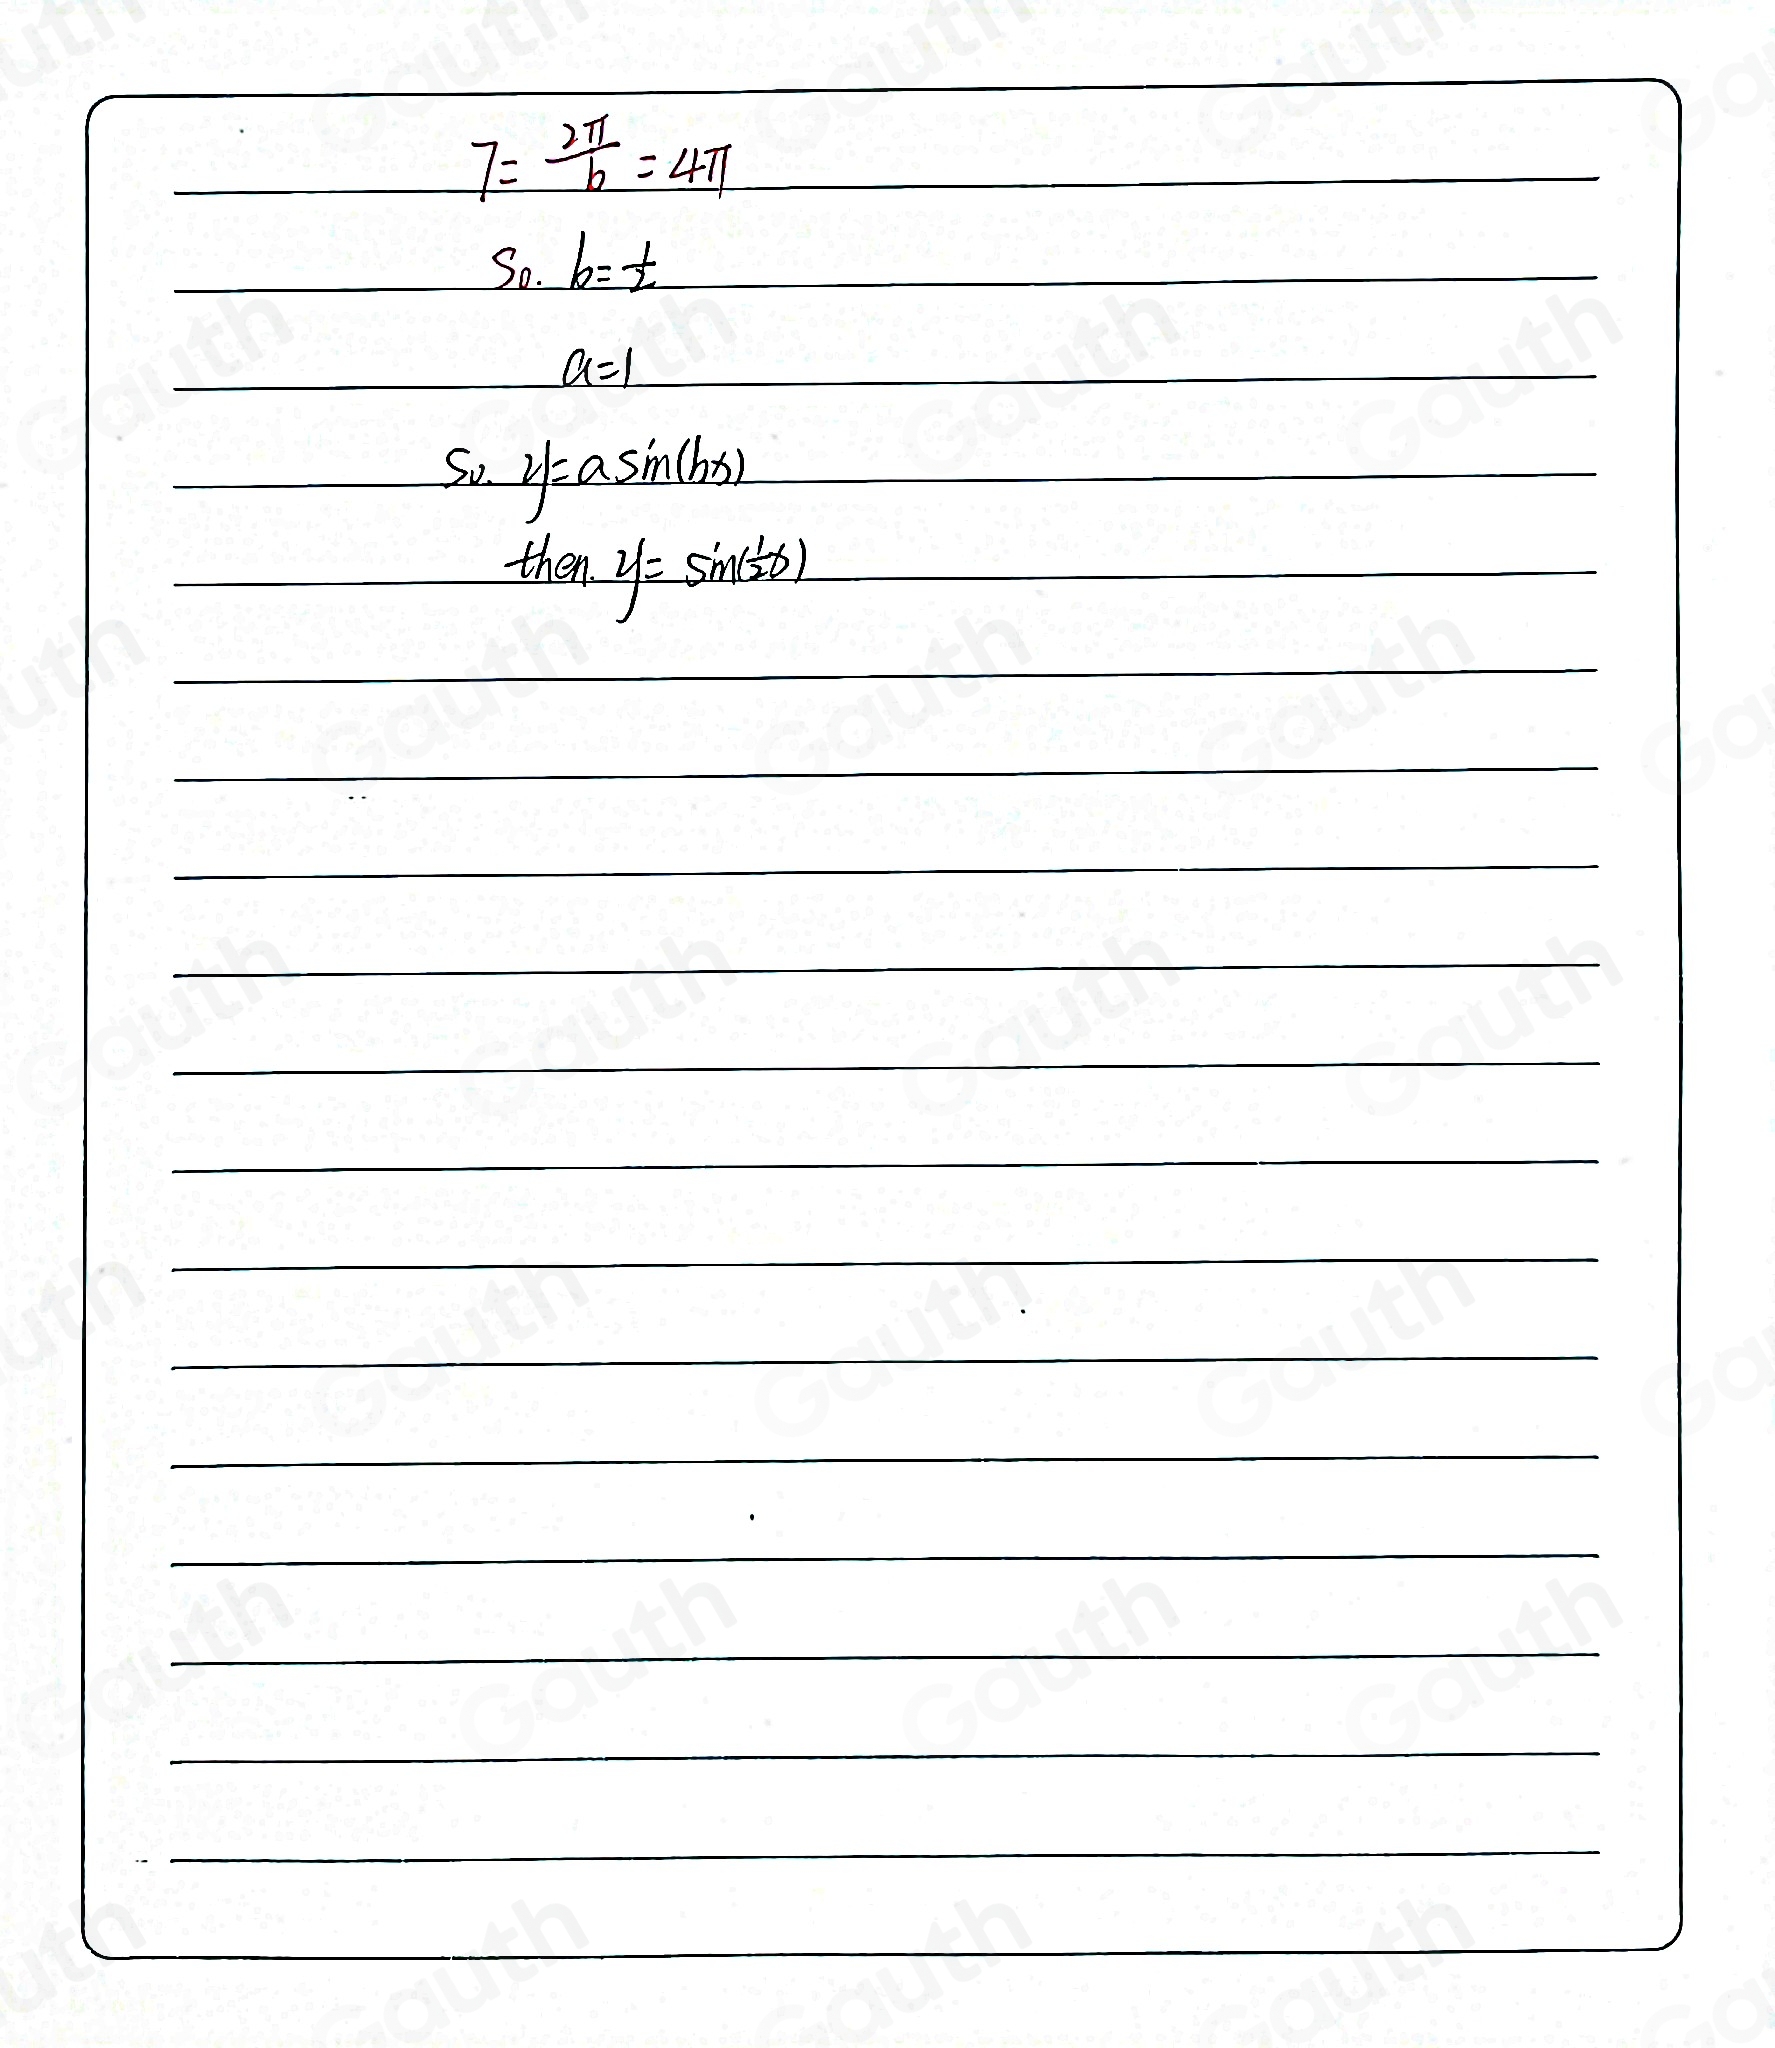 T = 2π/b = 4π
So. b = 1/2
a = 1
So. y = a sin(bx)
then. y = sin(1/2 x)